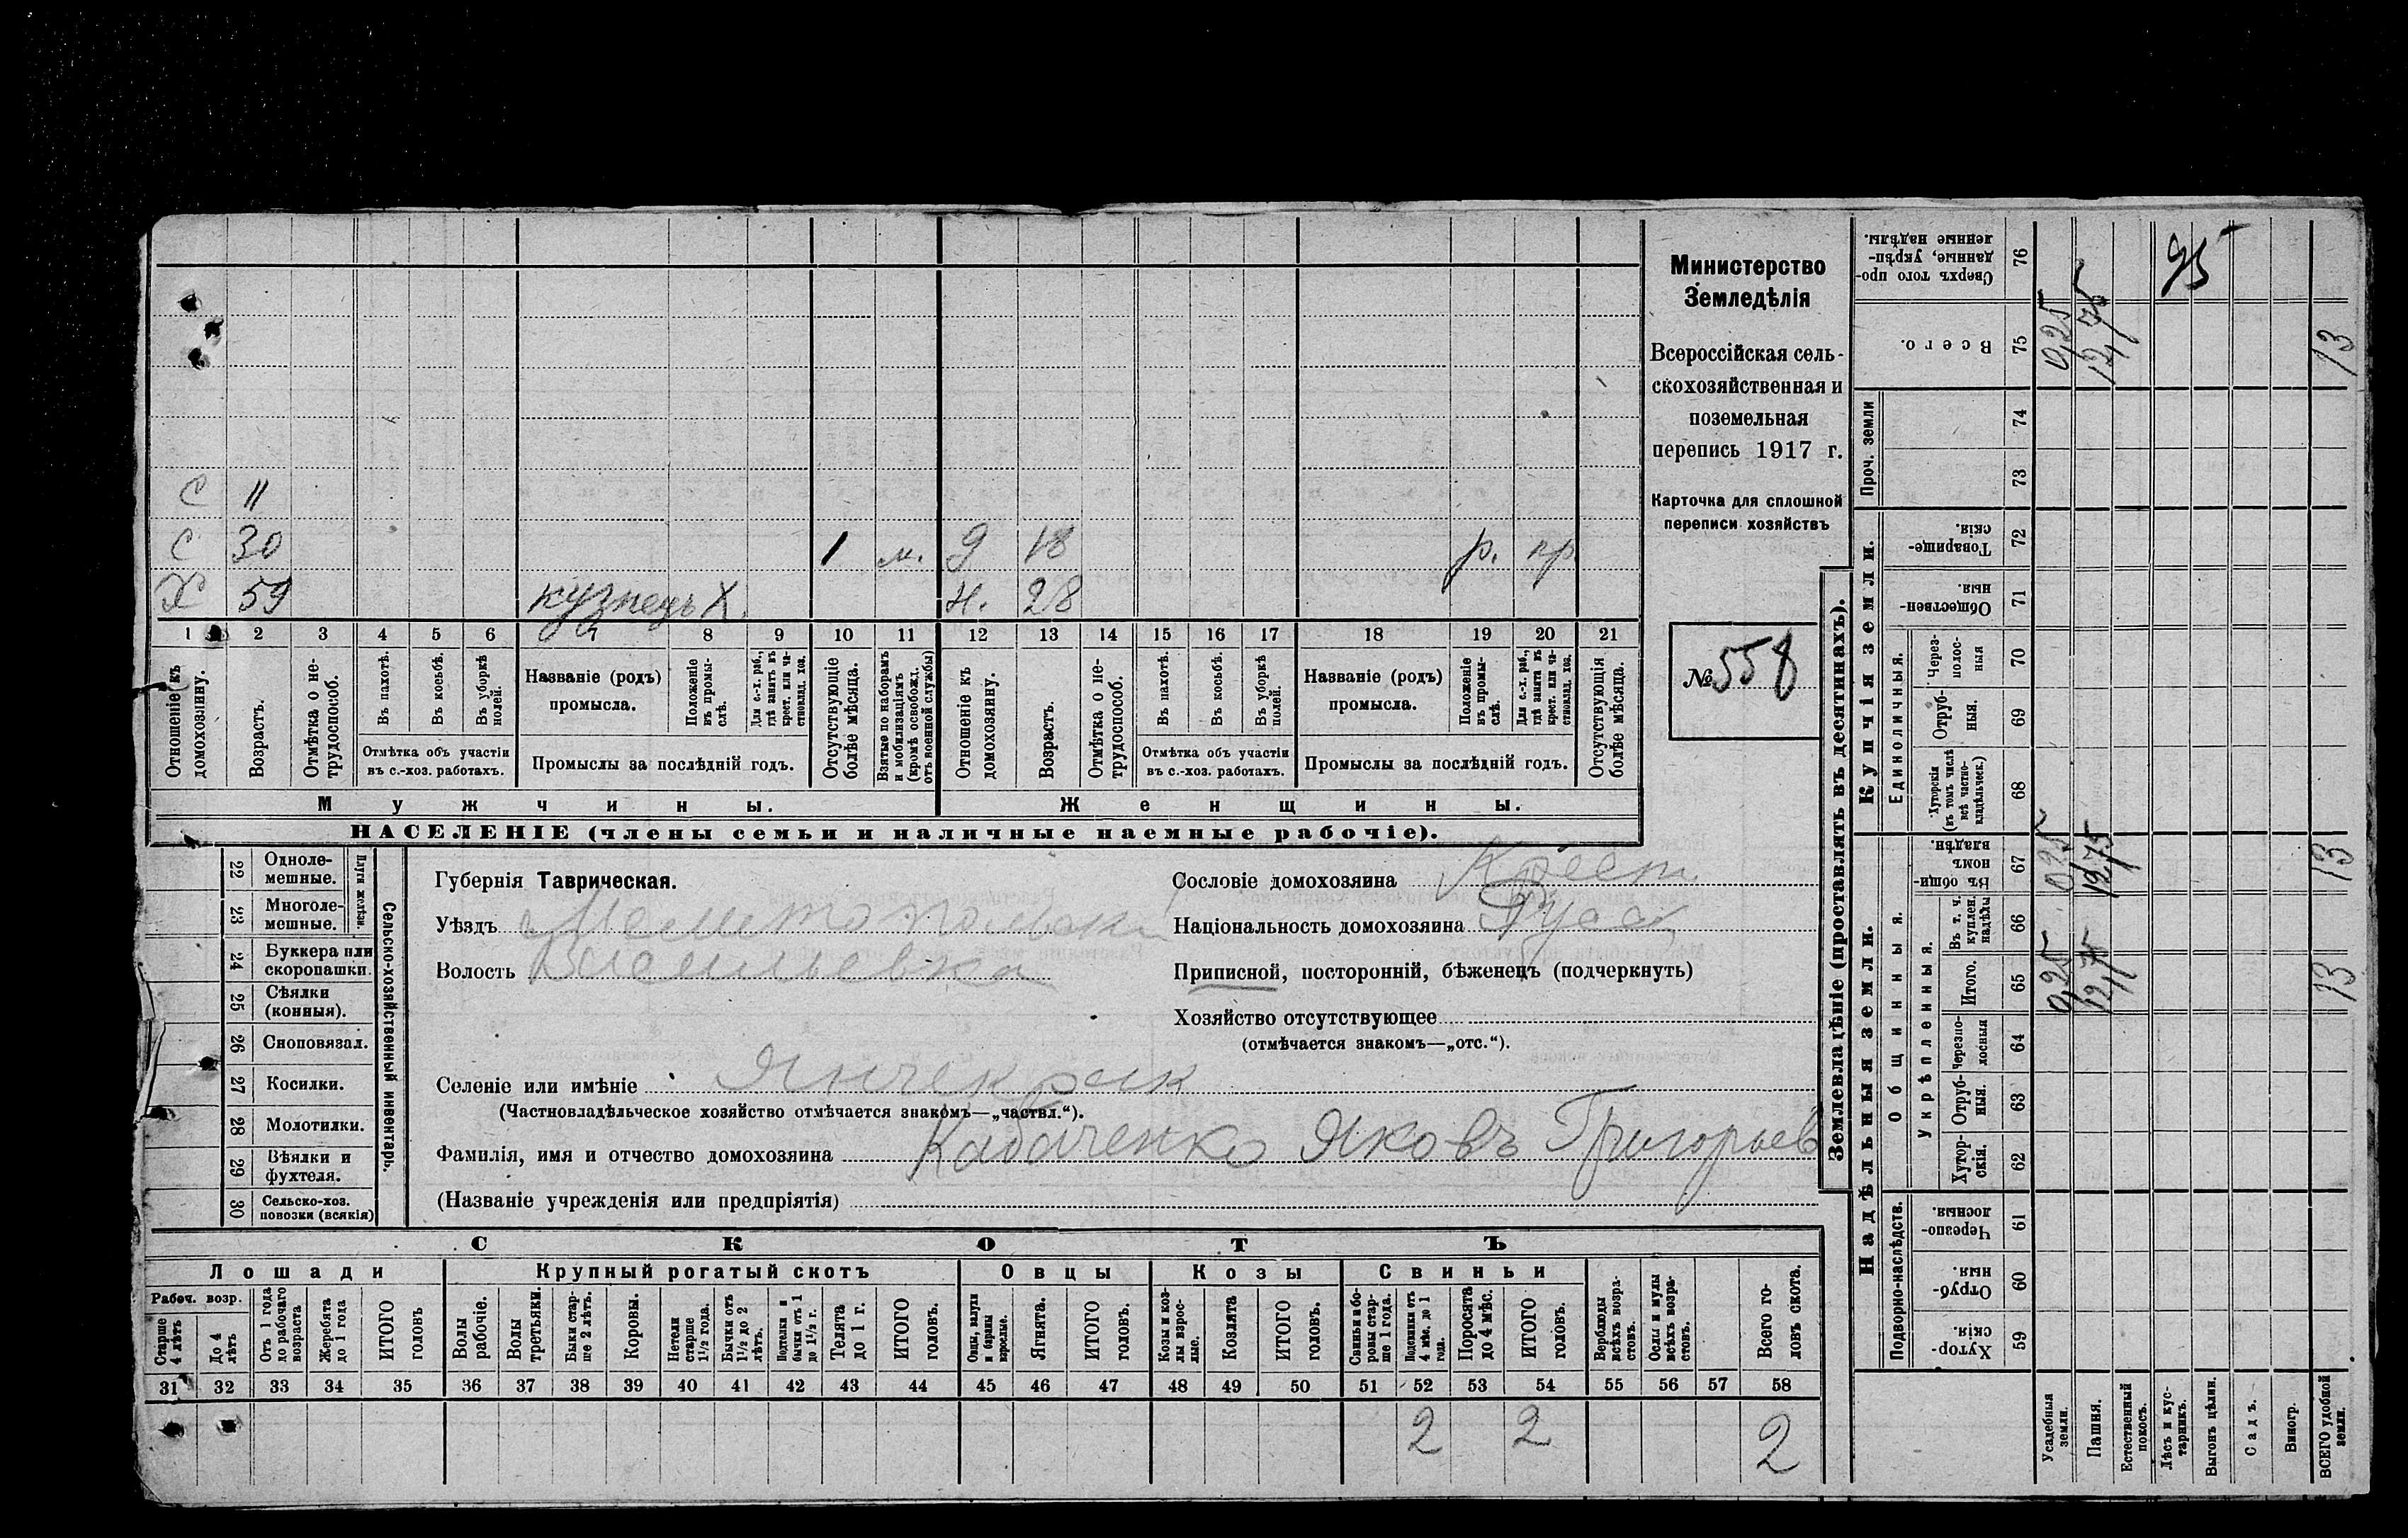 С 11
С 30 1 м. д 18 р. пр
Х 59 кузнецъ Х. н. 28
1 2 3 4 5 6 7 8 9 10 11 12 13 14 15 16 17 18 19 20 21
Отношеніе къ домохозяину.
Возрастъ.
Отмѣтка о не-
трудоспособ.
Въ пахотѣ.
Въ косьбѣ.
Въ уборкѣ
полей.
Отмѣтка объ участіи
въ с.-хоз. работахъ.
Названіе (родъ)
промысла.
Положеніе
въ промы-
слѣ.
Для с.-х. раб.,
гдѣ занятъ въ
крест. или ча-
стновлад. хоз.
Промыслы за послѣдній годъ.
Отсутствующіе
болѣе мѣсяца.
Взятые по наборамъ
и мобилизаціямъ
(кромѣ освобожд.
отъ военной службы)
Отношеніе къ
домохозяину.
Возрастъ.
Отмѣтка о не-
трудоспособ.
Въ пахотѣ.
Въ косьбѣ.
Въ уборкѣ
полей.
Отмѣтка объ участіи
въ с.-хоз. работахъ.
Названіе (родъ)
промысла.
Положеніе
въ промы-
слѣ.
Для с.-х. раб.,
гдѣ занята въ
крест. или ча-
стновлад. хоз.
Промыслы за послѣдній годъ.
Отсутствующія
болѣе мѣсяца.
Мужчины.
Женщины.
НАСЕЛЕНІЕ (члены семьи и наличные наемные рабочіе).
Министерство
Земледѣлія
Всероссійская сель-
скохозяйственная и
поземельная
перепись 1917 г.
Карточка для сплошной
переписи хозяйствъ
№ 558
22 Одноле-
мешные.
23 Многоле-
мешные.
Плуги желѣзн.
24 Буккера или
скоропашки.
25 Сѣялки
(конныя).
26 Сноповязал.
27 Косилки.
28 Молотилки.
29 Вѣялки и
фухтеля.
30 Сельско-хоз.
повозки (всякія)
Сельско-хозяйственный инвентарь.
Губернія Таврическая.
Уѣздъ Мелитопольскі
Волость Васильевка
Сословіе домохозяина Крест.
Національность домохозяина Русск
Приписной, посторонній, бѣженецъ (подчеркнуть)
Хозяйство отсутствующее
(отмѣчается знакомъ—„отс.“).
Селеніе или имѣніе Янчекрак
(Частновладѣльческое хозяйство отмѣчается знакомъ—„частвл.“).
Фамилія, имя и отчество домохозяина Кабаченко Яковъ Григорьев
(Названіе учрежденія или предпріятія)
СКОТЪ
Лошади
Крупный рогатый скотъ
Овцы
Козы
Свиньи
Рабоч. возр.
Старше
4 лѣтъ
До 4
лѣтъ
Отъ 1 года
до рабочаго
возраста
Жеребята
до 1 года
ИТОГО
головъ
Волы
рабочіе.
Волы
третьяки.
Быки стар-
ше 2 лѣтъ.
Коровы.
Нетели
старше
1½ года.
Бычки отъ
1½ до 2
лѣтъ.
Подтелки и
бычки отъ 1
до 1½ г.
Телята
до 1 г.
ИТОГО
головъ.
Овцы, валухи
и бараны
взрослые.
Ягнята.
ИТОГО
головъ.
Козы и коз-
лы взрос-
лые.
Козлята
ИТОГО
головъ.
Свиньи и бо-
ровы стар-
ше 1 года.
Подсвинки отъ
4 мѣс. до 1
года.
Поросята
до 4 мѣс.
ИТОГО
головъ.
Верблюды
всѣхъ возра-
стовъ.
Ослы и мулы
всѣхъ возра-
стовъ.
Всего го-
ловъ скота.
31 32 33 34 35 36 37 38 39 40 41 42 43 44 45 46 47 48 49 50 51 52 53 54 55 56 57 58
2 2 2
Землевладѣніе (проставлять въ десятинахъ).
Надѣльныя земли.
Купчія земли.
Проч. земли
Подворно-наслѣдств.
Общинныя.
Укрѣпленныя.
Единоличныя.
Хутор-
скія. 59
Отруб-
ныя. 60
Черезпо-
лосныя. 61
Хутор-
скія. 62
Отруб-
ныя. 63
Черезпо-
лосныя 64
Итого. 65
Въ т. ч.
куплен.
надѣлы 66
Въ общи-
номъ
владѣн. 67
Хуторскія
(въ томъ числѣ
всѣ частно-
владѣльческ.) 68
Отруб-
ныя. 69
Через-
полос-
ныя 70
Обществен-
ныя. 71
Товарище-
скія. 72
73
74
Всего. 75
Сверхъ того про-
данные, укрѣп-
ленные надѣлы. 76
Усадебныя
земли.
0,25 025 0,25
Пашня.
12,75 12,75 12,75
Естественный
покосъ.
Лѣсъ и кус-
тарникъ.
Выгонъ цѣлин.
Садъ.
Виногр.
ВСЕГО удобной
земли.
13 13 13
95